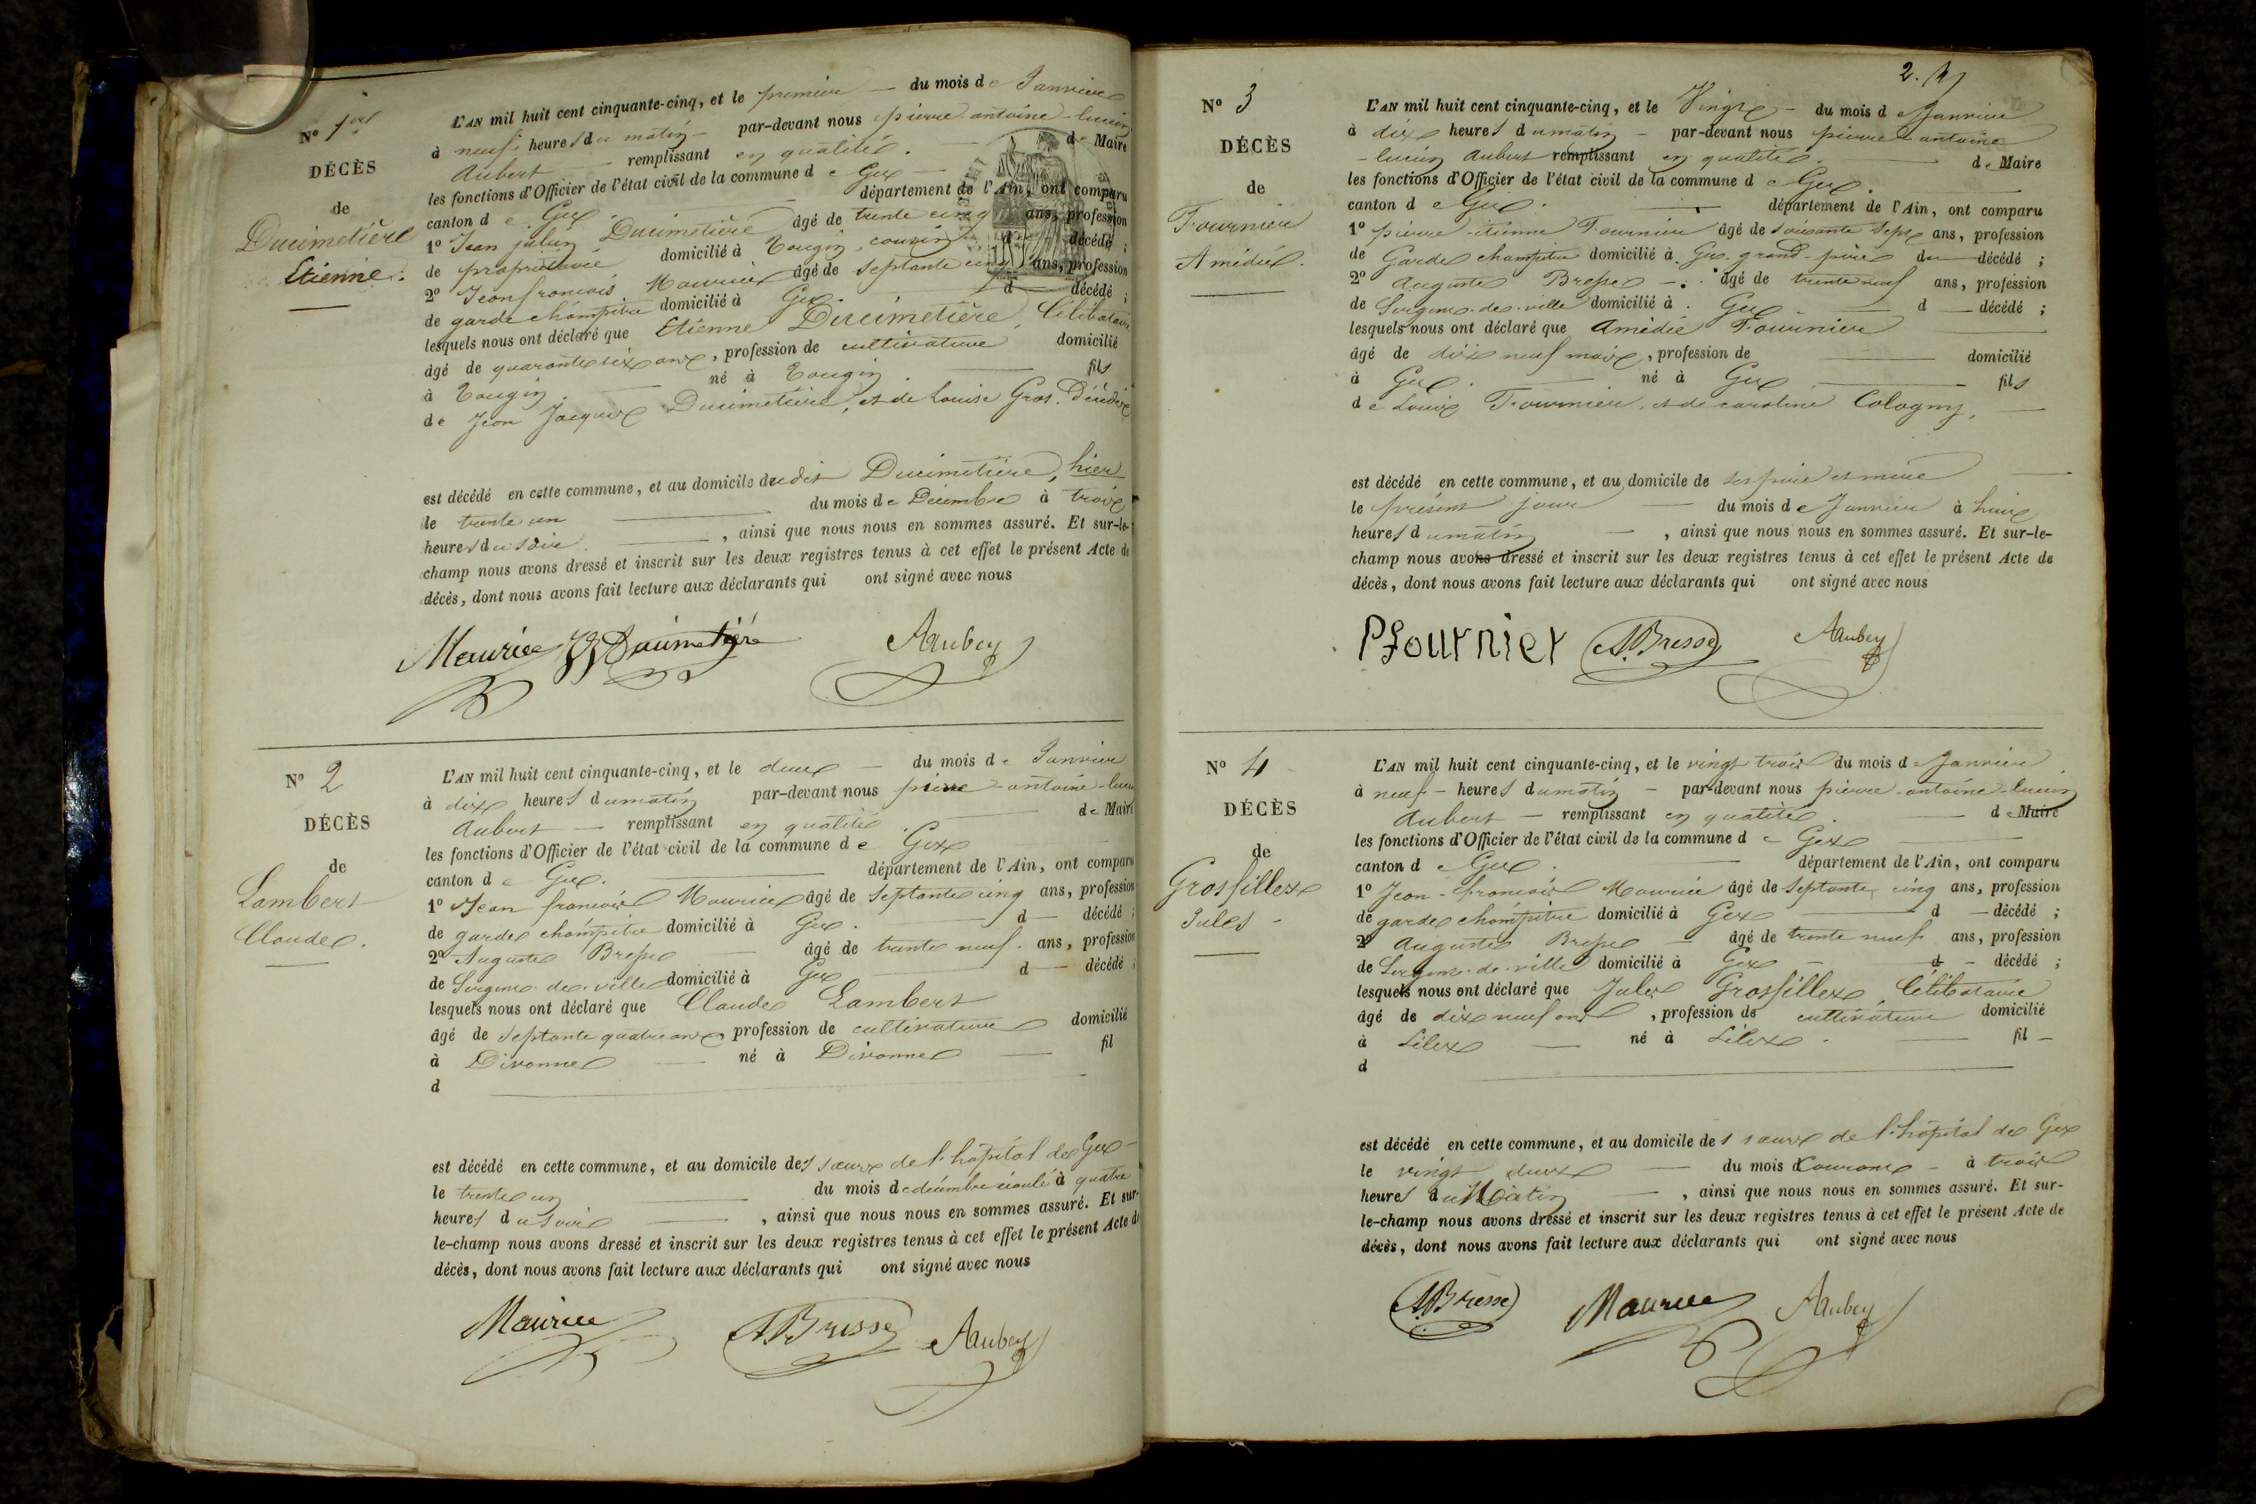 N° 1er
DÉCÈS
de
Ducimetière
Etienne.
L'AN mil huit cent cinquante-cinq, et le premier du mois de Janvier
à neuf heures du matin par-devant nous pierre-antoine-lucien
Aubert remplissant en qualité de Maire
les fonctions d'Officier de l'état civil de la commune de Gex
canton de Gex. département de l'Ain, ont comparu
1° Jean julien Ducimetière âgé de trente cinq ans, profession
de propriétaire domicilié à Tougin, cousin d décédé ;
2° Jean françois Maurice âgé de septante cinq ans, profession
de garde champêtre domicilié à Gex. d décédé ;
lesquels nous ont déclaré que Etienne Ducimetière, Célibataire
âgé de quarante six ans, profession de cultivateur domicilié
à Tougin né à Tougin fils
de Jean Jacques Ducimetière, et de Louise Gros. Décédés
est décédé en cette commune, et au domicile dudit Ducimetière, hier
le trente un du mois de Décembre à trois
heures du soir. , ainsi que nous nous en sommes assuré. Et sur-le-
champ nous avons dressé et inscrit sur les deux registres tenus à cet effet le présent Acte de
décès, dont nous avons fait lecture aux déclarants qui ont signé avec nous
Maurice JJ Ducimetière AAubert
N° 2
DÉCÈS
de
Lambert
Claude.
L'AN mil huit cent cinquante-cinq, et le deux du mois de Janvier
à dix heures du matin par-devant nous pierre-antoine-lucien
Aubert remplissant en qualité de Maire
les fonctions d'Officier de l'état civil de la commune de Gex
canton de Gex. département de l'Ain, ont comparu
1° Jean françois Maurice âgé de septante cinq ans, profession
de garde champêtre domicilié à Gex. d décédé ;
2° Auguste Bresse âgé de trente neuf. ans, profession
de Sergent de ville domicilié à Gex d décédé ;
lesquels nous ont déclaré que Claude Lambert
âgé de septante quatre ans profession de cultivateur domicilié
à Divonne né à Divonne fil
d
est décédé en cette commune, et au domicile des sœurs de l'hôpital de Gex
le trente un du mois de décembre écoulé à quatre
heures du soir , ainsi que nous nous en sommes assuré. Et sur-
le-champ nous avons dressé et inscrit sur les deux registres tenus à cet effet le présent Acte de
décès, dont nous avons fait lecture aux déclarants qui ont signé avec nous
Maurice A.Bresse AAubert
2.
N° 3
DÉCÈS
de
Fournier
Amédée.
L'AN mil huit cent cinquante-cinq, et le Vingt du mois de Janvier
à dix heures du matin par-devant nous pierre-antoine
-lucien Aubert remplissant en qualité de Maire
les fonctions d'Officier de l'état civil de la commune de Gex.
canton de Gex. département de l'Ain, ont comparu
1° pierre-étienne Fournier âgé de soixante sept ans, profession
de Garde champêtre domicilié à Gex. grand-père du décédé ;
2° Auguste Bresse âgé de trente neuf ans, profession
de Sergent-de-ville domicilié à Gex d décédé ;
lesquels nous ont déclaré que Amédée Fournier
âgé de dix neuf mois, profession de domicilié
à Gex. né à Gex fils
de Louis Fournier, et de caroline Cologny,
est décédé en cette commune, et au domicile de ses père et mère
le présent jour du mois de Janvier à huit
heures du matin , ainsi que nous nous en sommes assuré. Et sur-le-
champ nous avons dressé et inscrit sur les deux registres tenus à cet effet le présent Acte de
décès, dont nous avons fait lecture aux déclarants qui ont signé avec nous
Pfournier A.Bresse AAubert
N° 4
DÉCÈS
de
Grosfillex
Jules
L'AN mil huit cent cinquante-cinq, et le vingt trois du mois de Janvier
à neuf heures du matin par-devant nous pierre-antoine-lucien
Aubert remplissant en qualité de Maire
les fonctions d'Officier de l'état civil de la commune de Gex
canton de Gex. département de l'Ain, ont comparu
1° Jean-françois Maurice âgé de septante cinq ans, profession
de garde champêtre domicilié à Gex d décédé ;
2° Auguste Bresse âgé de trente neuf ans, profession
de Sergent-de-ville domicilié à Gex d décédé ;
lesquels nous ont déclaré que Jules Grosfillex, Célibataire
âgé de dix neuf ans, profession de cultivateur domicilié
à Lélex né à Lélex fil
d
est décédé en cette commune, et au domicile des sœurs de l'hôpital de Gex
le vingt deux du mois courant à trois
heures du Matin , ainsi que nous nous en sommes assuré. Et sur-
le-champ nous avons dressé et inscrit sur les deux registres tenus à cet effet le présent Acte de
décès, dont nous avons fait lecture aux déclarants qui ont signé avec nous
A.Bresse Maurice AAubert